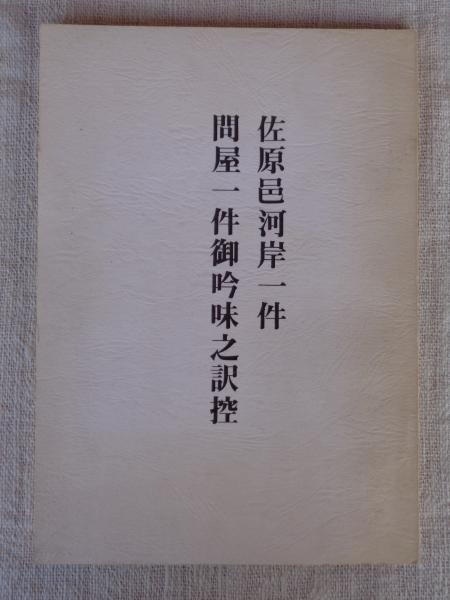 佐原邑河岸一件
問屋一件御吟味之訳控